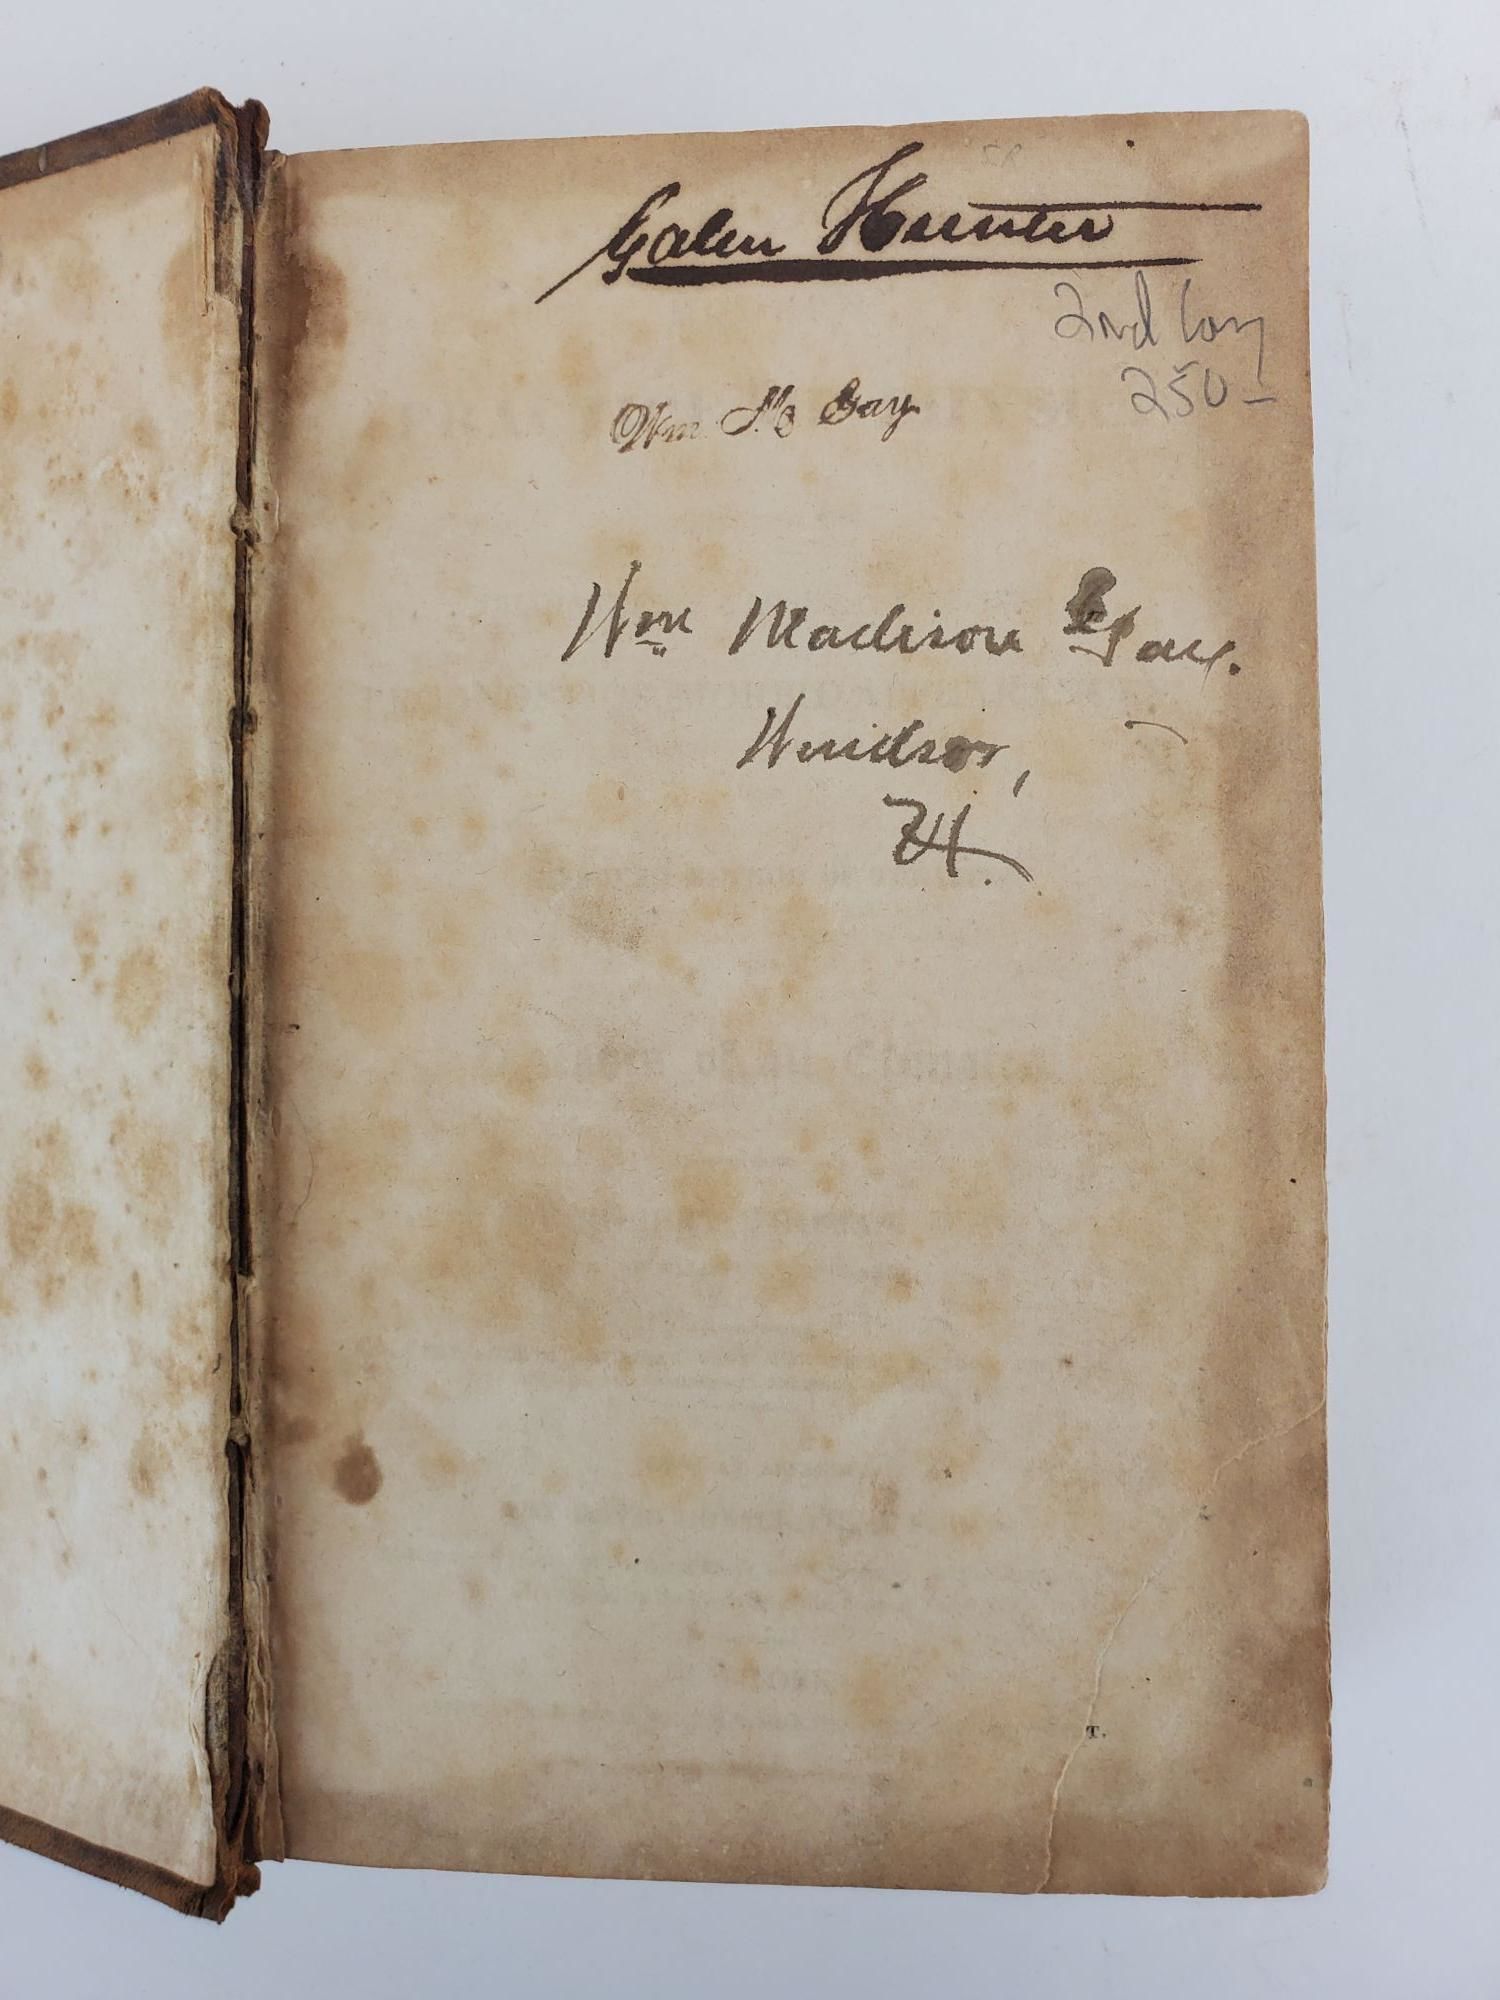 Galen Hunter
2nd Cop
250-
Wm. M Gay.
Wm Madison Gay.
Windsor,
T.